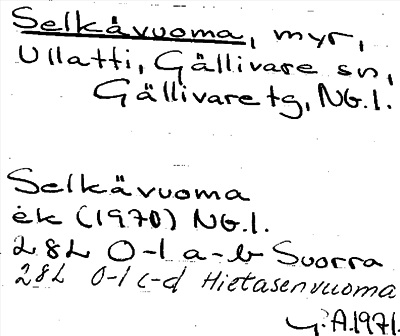 Selkävuoma, myr,
Ullatti, Gällivare sn,
Gällivare tg, Nb.l.
Selkävuoma
ek (1970) Nb.l.
28L 0-1 a-b Suorra
28L 0-1 c-d Hietasenvuoma
A. 1971.